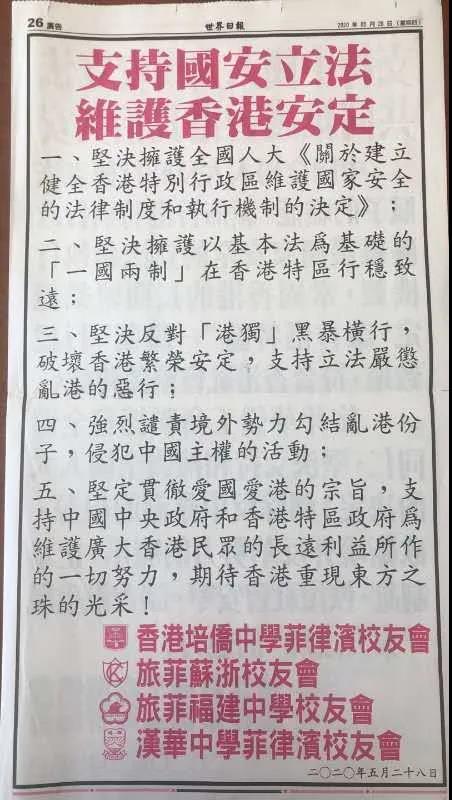 26 廣告 世界日報 2020年05月28日（星期四）
支持國安立法
維護香港安定
一、堅決擁護全國人大《關於建立
健全香港特別行政區維護國家安全
的法律制度和執行機制的決定》；
二、堅決擁護以基本法為基礎的
「一國兩制」在香港特區行穩致
遠；
三、堅決反對「港獨」黑暴橫行，
破壞香港繁榮安定，支持立法嚴懲
亂港的惡行；
四、強烈譴責境外勢力勾結亂港份
子，侵犯中國主權的活動；
五、堅定貫徹愛國愛港的宗旨，支
持中國中央政府和香港特區政府為
維護廣大香港民眾的長遠利益所作
的一切努力，期待香港重現東方之
珠的光采！
香港培僑中學菲律濱校友會
旅菲蘇浙校友會
旅菲福建中學校友會
漢華中學菲律濱校友會
二〇二〇年五月二十八日